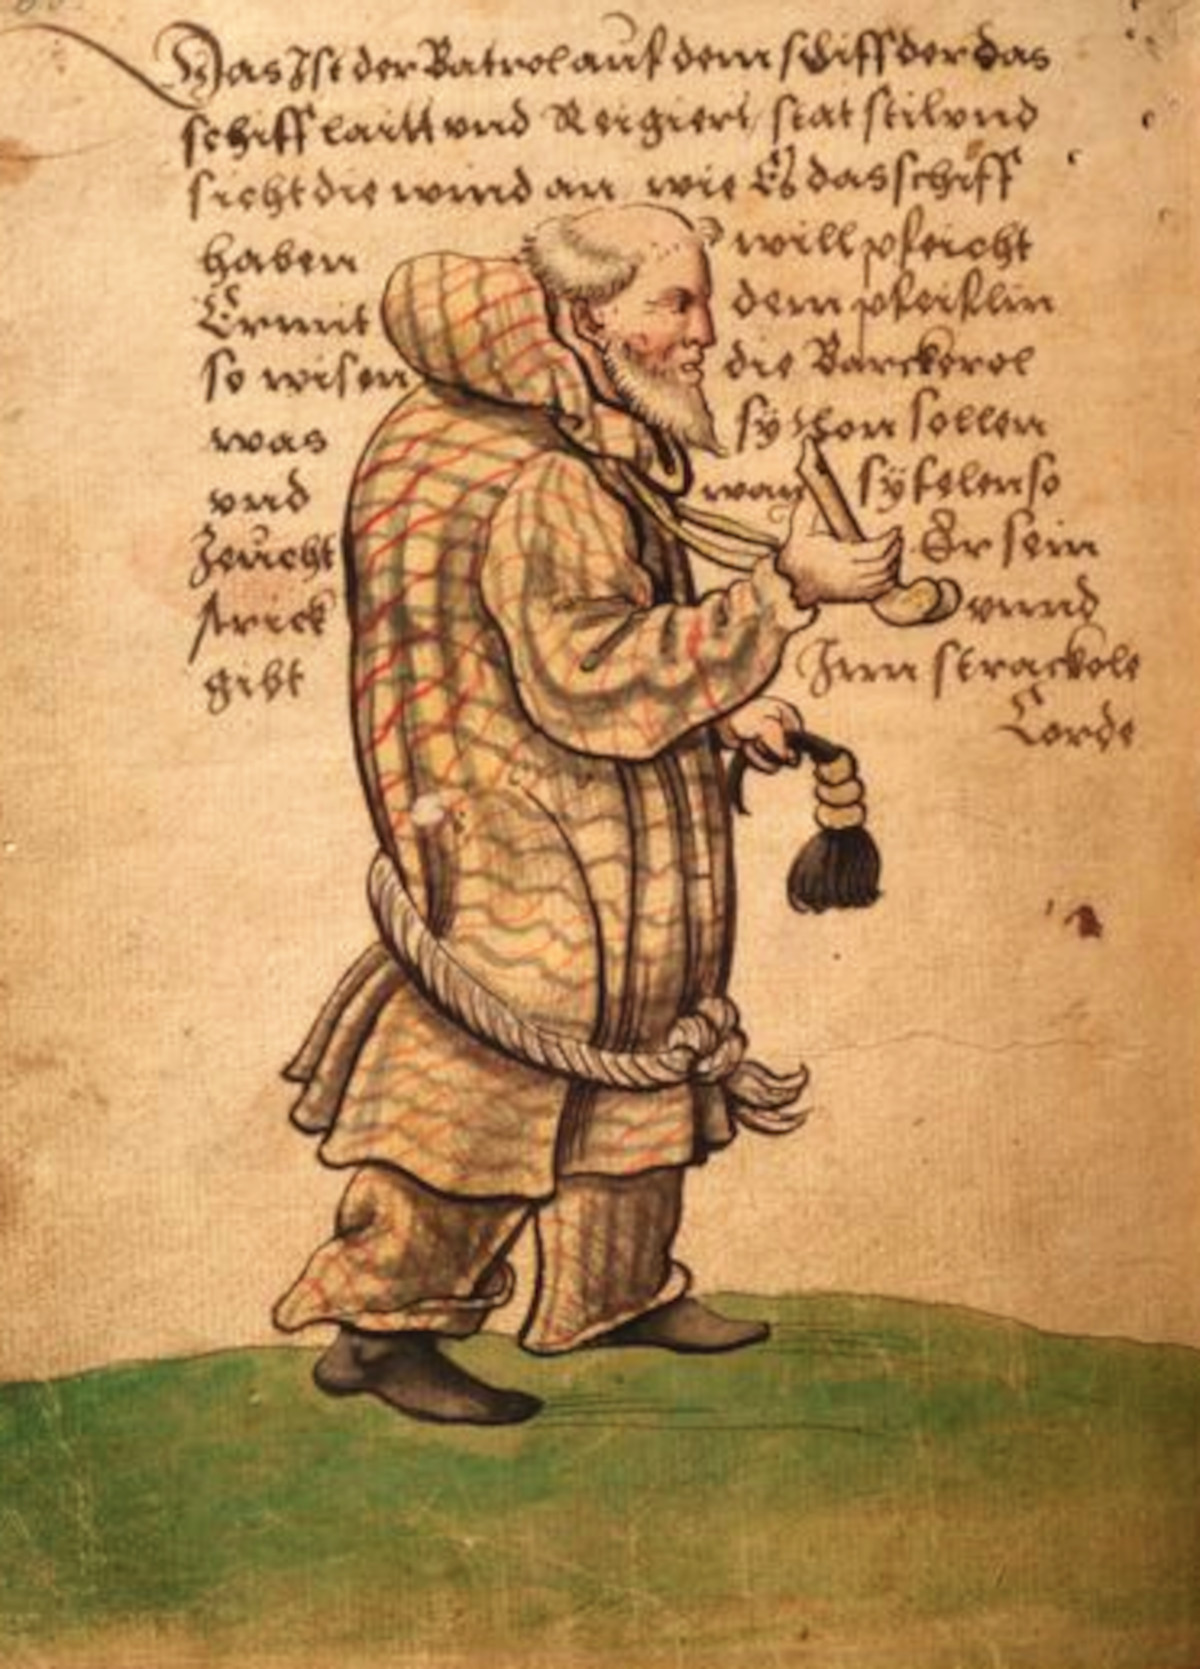 Das Ist der Patrol auf dem schiff der das
schiff laitt vnd Reigiert stat stil vnd
sicht die wind an wie Er das schiff
haben will pfeicht
Er mit dem pfeiflin
so wisen die Barckerol
was sÿ thon sollen
vnd wan sÿ felen so
Zeücht Er sein
strick vnnd
gibt Inn strackole
Corde